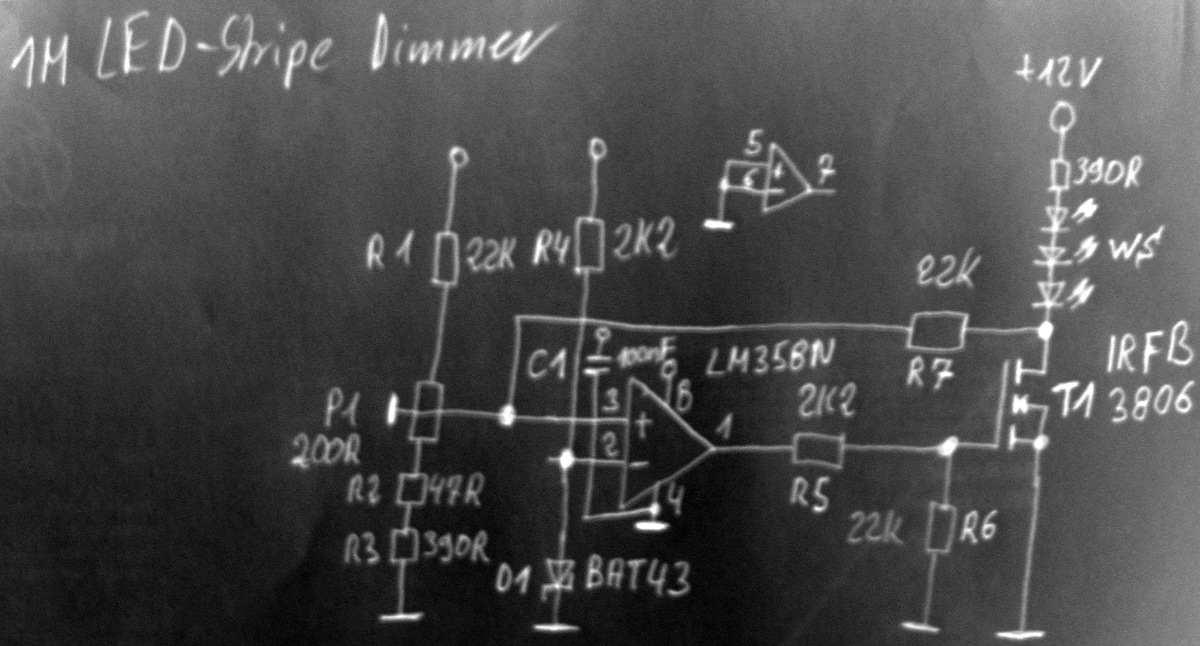 1M LED-Stripe Dimmer
+12V
5
6 + 7
-
390R
R1 22K R4 2K2
WS
22K
C1 100nF LM358N
R7
IRFB
P1 3 8
200R + 1 2K2 T1 3806
2 -
R2 47R 4 R5
22K R6
R3 390R
D1 BAT43